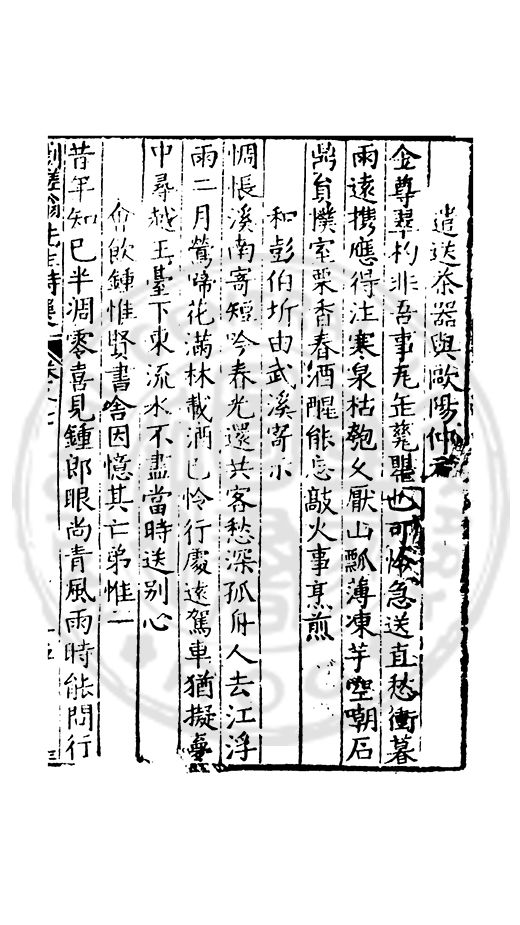 遣送茶器與歐陽仲
金尊翠杓非吾事瓦缶甕罌也可怜急送直愁衝暮
雨遠携應得注寒泉枯匏久厭山瓢薄凍芋空嘲石
鼎負樸室栗香春酒醒能忘敲火事烹煎
和彭伯圻由武溪寄示
惆悵溪南寄短吟春光還共客愁深孤舟人去江浮
雨二月鶯啼花滿林載酒已怜行處遠駕車猶擬夢
中尋越王臺下東流水不盡當時送别心
會飲鍾惟賢書舍因憶其亡弟惟
昔年知已半凋零喜見鍾郎眼尚青風雨時能問行
槎翁先生詩集